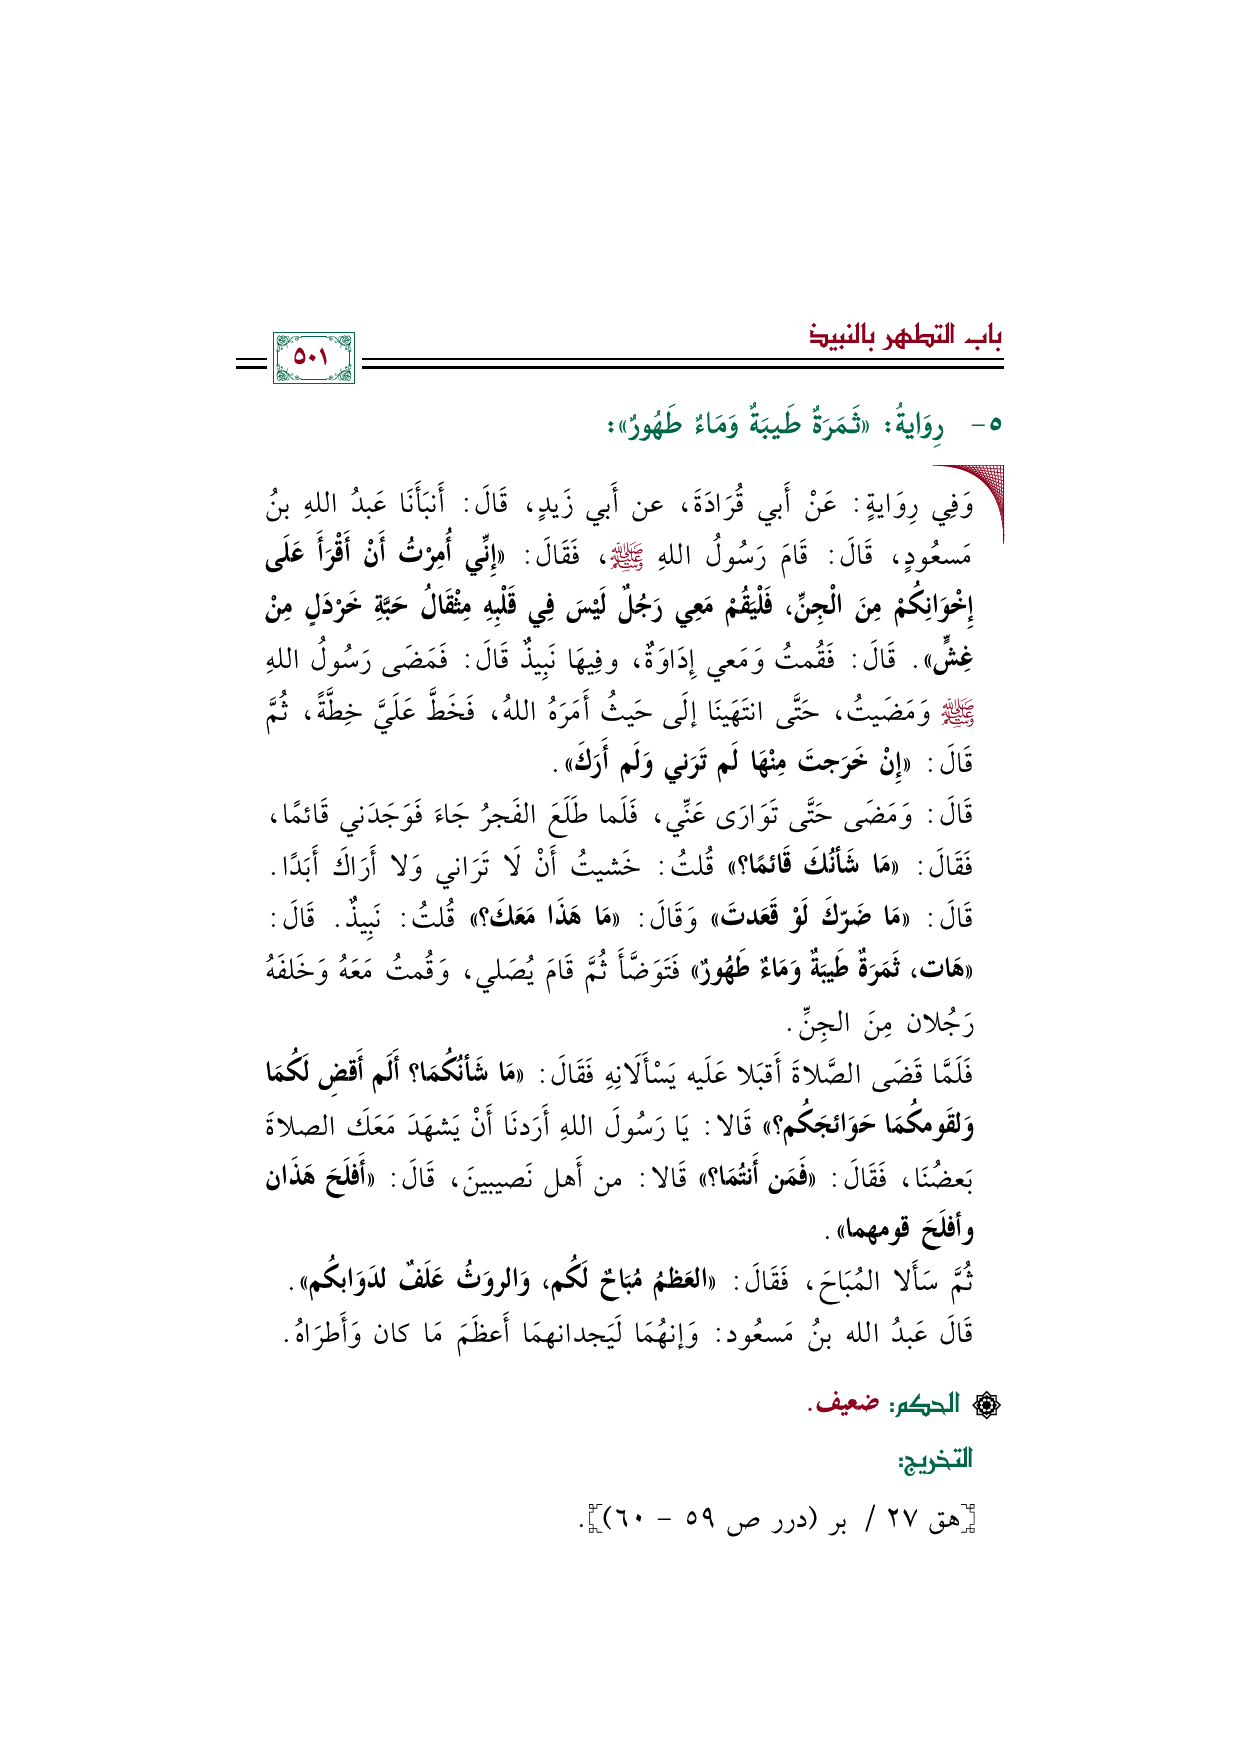 باب التطهر بالنبيذ
٥٠١
٥- رِوَايةُ: «ثَمَرَةٌ طَيبَةٌ وَمَاءٌ طَهُورٌ»:
وَفِي رِوَايةٍ: عَنْ أَبي قُرَادَةَ، عن أَبي زَيدٍ، قَالَ: أَنبَأَنَا عَبدُ اللهِ بنُ
مَسعُودٍ، قَالَ: قَامَ رَسُولُ اللهِ ﷺ، فَقَالَ: «إِنِّي أُمِرْتُ أَنْ أَقْرَأَ عَلَى
إِخْوَانِكُمْ مِنَ الْجِنِّ، فَلْيَقُمْ مَعِي رَجُلٌ لَيْسَ فِي قَلْبِهِ مِثْقَالُ حَبَّةِ خَرْدَلٍ مِنْ
غِشٍّ». قَالَ: فَقُمتُ وَمَعي إِدَاوَةٌ، وفِيهَا نَبِيذٌ قَالَ: فَمَضَى رَسُولُ اللهِ
ﷺ وَمَضَيتُ، حَتَّى انتَهَينَا إلَى حَيثُ أَمَرَهُ اللهُ، فَخَطَّ عَلَيَّ خِطَّةً، ثُمَّ
قَالَ: «إِنْ خَرَجتَ مِنْهَا لَم تَرَني وَلَم أَرَكَ».
قَالَ: وَمَضَى حَتَّى تَوَارَى عَنِّي، فَلَما طَلَعَ الفَجرُ جَاءَ فَوَجَدَني قَائمًا،
فَقَالَ: «مَا شَأنُكَ قَائمًا؟» قُلتُ: خَشيتُ أَنْ لَا تَرَاني وَلا أَرَاكَ أَبَدًا.
قَالَ: «مَا ضَرّكَ لَوْ قَعَدتَ» وَقَالَ: «مَا هَذَا مَعَكَ؟» قُلتُ: نَبِيذٌ. قَالَ:
«هَات، ثَمَرَةٌ طَيبَةٌ وَمَاءٌ طَهُورٌ» فَتَوَضَّأَ ثُمَّ قَامَ يُصَلي، وَقُمتُ مَعَهُ وَخَلفَهُ
رَجُلان مِنَ الجِنِّ.
فَلَمَّا قَضَى الصَّلاةَ أَقبَلا عَلَيه يَسْأَلَانِهِ فَقَالَ: «مَا شَأنُكُمَا؟ أَلَم أَقضِ لَكُمَا
وَلقَومكُمَا حَوَائجَكُم؟» قَالا: يَا رَسُولَ اللهِ أَرَدنَا أَنْ يَشهَدَ مَعَكَ الصلاةَ
بَعضُنَا، فَقَالَ: «فَمَن أَنتُمَا؟» قَالا: من أَهل نَصيبينَ، قَالَ: «أَفلَحَ هَذَان
وأفلَحَ قومهما».
ثُمَّ سَأَلا المُبَاحَ، فَقَالَ: «العَظمُ مُبَاحٌ لَكُم، وَالروَثُ عَلَفٌ لدَوَابكُم».
قَالَ عَبدُ الله بنُ مَسعُود: وَإنهُمَا لَيَجدانهمَا أَعظَمَ مَا كان وَأَطرَاهُ.
الحكم: ضعيف.
التخريج:
[هق ٢٧ / بر (درر ص ٥٩ - ٦٠)].